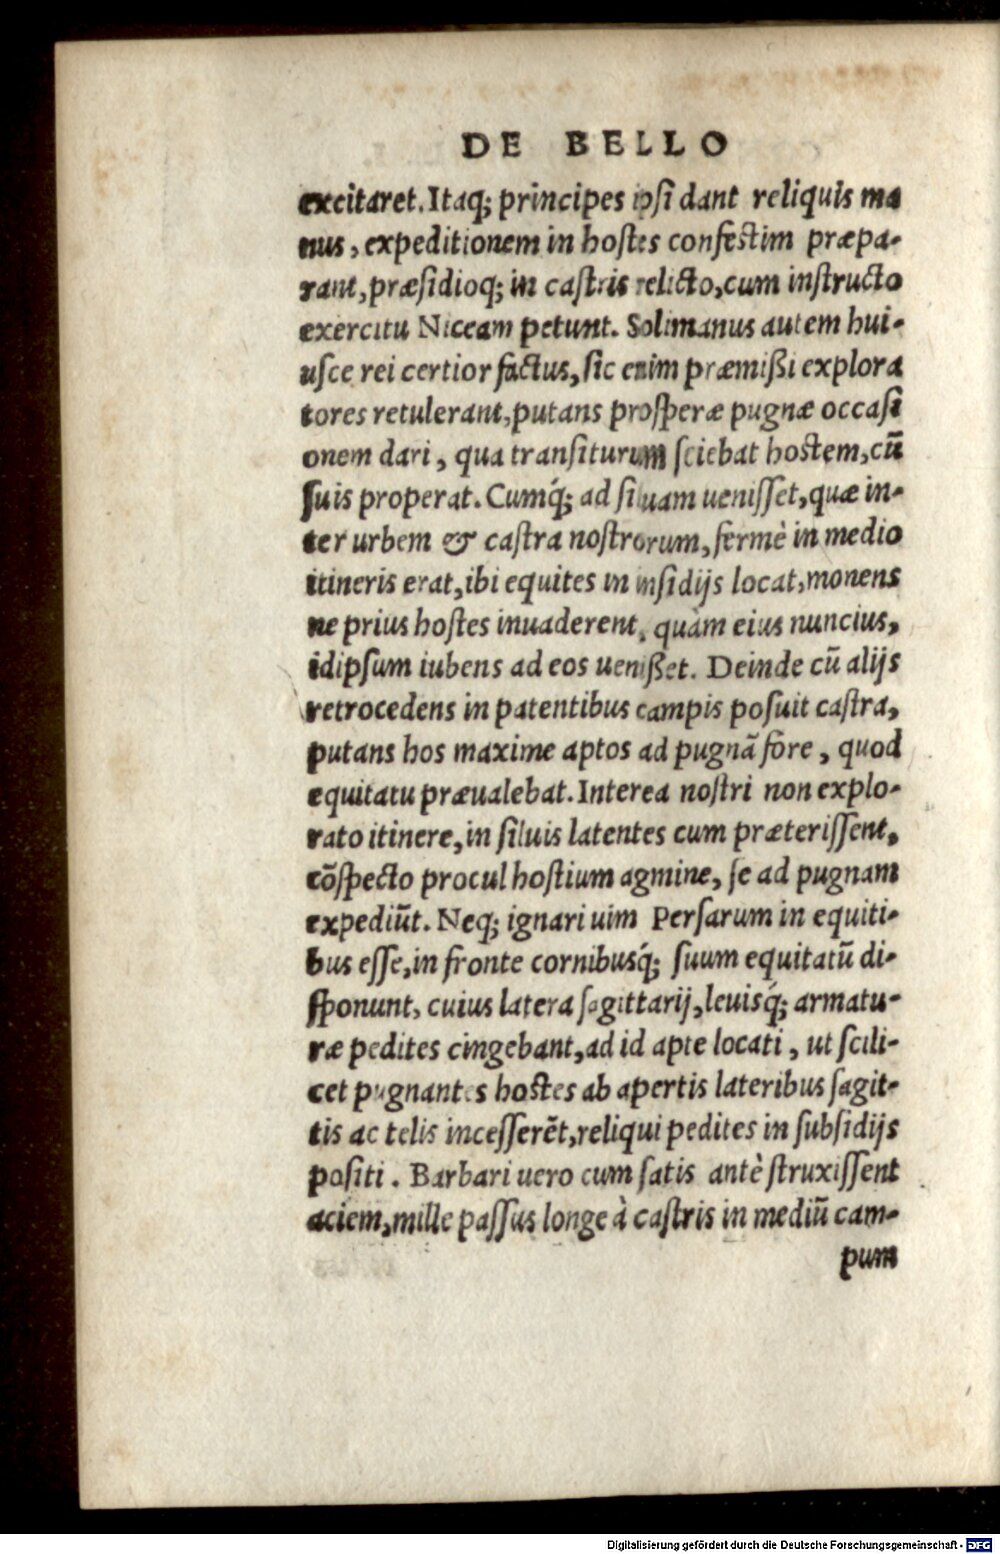 DE BELLO
excitaret. Itaq; principes ipsi dant reliquis ma
nus, expeditionem in hostes confestim præpa-
rant, præsidioq; in castris relicto, cum instructo
exercitu Niceam petunt. Solimanus autem hui-
usce rei certior factus, sic enim præmißi explora
tores retulerant, putans prosperæ pugnæ occasi
onem dari, qua transiturum sciebat hostem, cū
suis properat. Cumq́; ad siluam uenisset, quæ in-
ter urbem & castra nostrorum, fermè in medio
itineris erat, ibi equites in insidijs locat, monens
ne prius hostes inuaderent, quàm eius nuncius,
idipsum iubens ad eos uenißet. Deinde cū alijs
retrocedens in patentibus campis posuit castra,
putans hos maxime aptos ad pugnā fore, quod
equitatu præualebat. Interea nostri non explo-
rato itinere, in siluis latentes cum præterissent,
cōspecto procul hostium agmine, se ad pugnam
expediūt. Neq; ignari uim Persarum in equiti-
bus esse, in fronte cornibusq́; suum equitatū di-
sponunt, cuius latera sagittarij, leuisq́; armatu-
ræ pedites cingebant, ad id apte locati, ut scili-
cet pugnantes hostes ab apertis lateribus sagit-
tis ac telis incesserēt, reliqui pedites in subsidijs
positi. Barbari uero cum satis antè struxissent
aciem, mille passus longe à castris in mediū cam-
pum
Digitalisierung gefördert durch die Deutsche Forschungsgemeinschaft - DFG